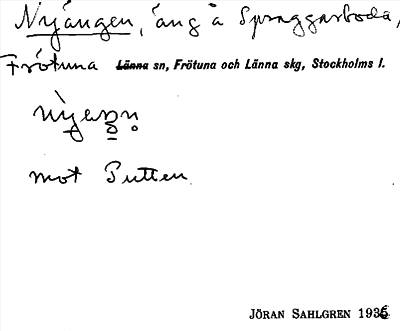 Nyängen, äng å Spraggarboda,
Frötuna Länna sn, Frötuna och Länna skg, Stockholms l.
mot Putten
JÖRAN SAHLGREN 1936